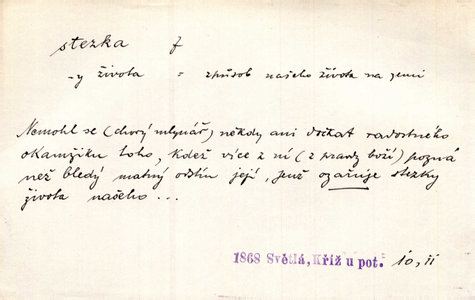 stezka f
-y života = způsob našeho života na zemi
Nemohl se (chorý mlynář) někdy ani dočkat radostného
okamžiku toho, kdež více z ní (z pravdy boží) pozná
než bledý matný odstín její, jenž ozařuje stezky
života našeho ...
1868 Světlá, Kříž u pot. 10, II